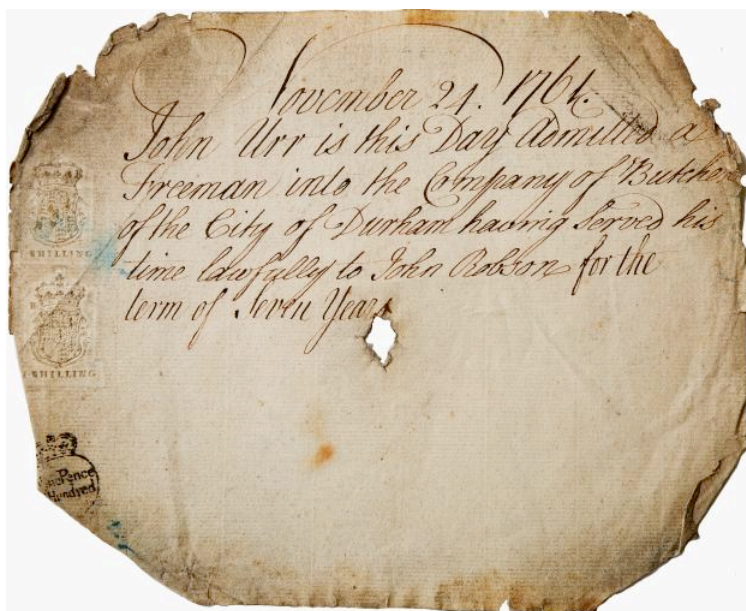 November 24. 1761.
John Urr is this Day Admitted a
Freeman into the Company of Butchers
of the City of Durham having served his
time lawfully to John Robson for the
term of Seven Years
SHILLING
SHILLING
Pence
Hundred